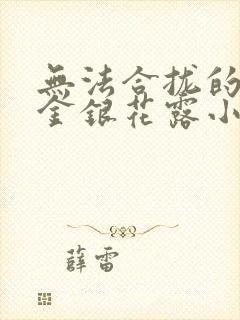 無法合拢的
金銀花露小
薛雷